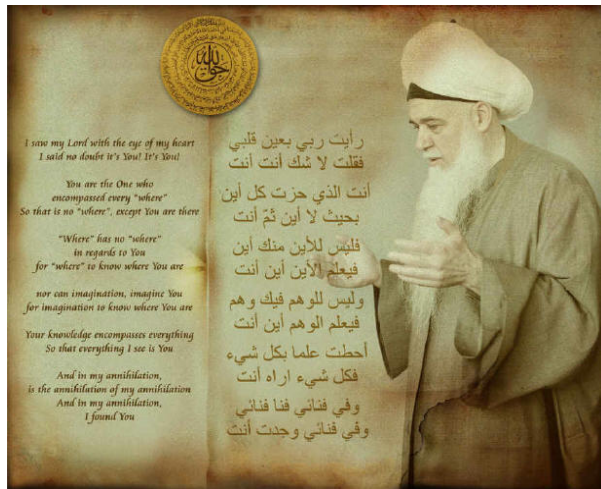 I saw my Lord with the eye of my heart
I said no doubt it's You! It's You!
You are the One who
encompassed every "where"
So that is no "where", except You are there
"Where" has no "where"
in regards to You
for "where" to know where You are
nor can imagination, imagine You
for imagination to know where You are
Your knowledge encompasses everything
So that everything I see is You
And in my annihilation,
is the annihilation of my annihilation
And in my annihilation,
I found You
رأيت ربي بعين قلبي
فقلت لا شك أنت أنت
أنت الذي حزت كل أين
بحيث لا أين ثمّ أنت
فليس للأين منك أين
فيعلم الأين أين أنت
وليس للوهم فيك وهم
فيعلم الوهم أين أنت
أحطت علما بكل شيء
فكل شيء اراه أنت
وفي فنائي فنا فنائي
وفي فنائي وجدت أنت